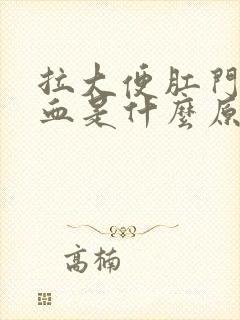 拉大便肛門
血是什麼原
高楠